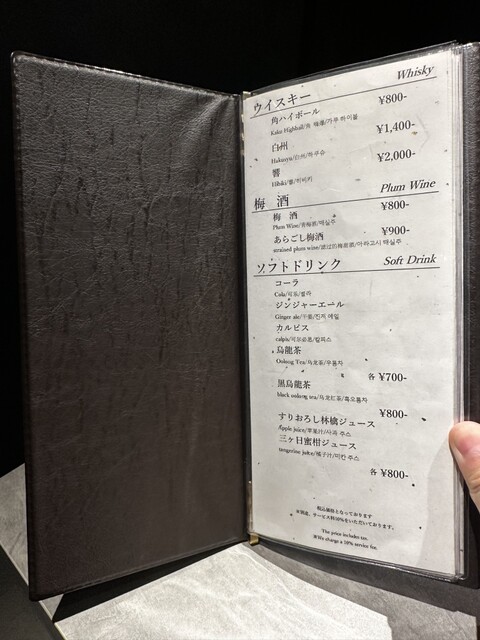 ウイスキー Whisky
角ハイボール ¥800-
Kaku Highball/角 嗨棒/가쿠 하이볼
白州 ¥1,400-
Hakusyu/白州/하쿠슈
響 ¥2,000-
Hibiki/響/히비키
梅酒 Plum Wine
梅酒 ¥800-
Plum Wine/青梅酒/매실주
あらごし梅酒 ¥900-
strained plum wine/滤过的梅酒/아라고시 매실주
ソフトドリンク Soft Drink
コーラ
Cola/可乐/콜라
ジンジャーエール
Ginger ale/干姜/진저 에일
カルピス
calpis/可尔必思/칼피스
烏龍茶
Oolong Tea/乌龙茶/우롱차
各 ¥700-
黒烏龍茶
black oolong tea/乌龙红茶/흑오룡차
¥800-
すりおろし林檎ジュース
Apple juice/苹果汁/사과 주스
三ヶ日蜜柑ジュース
tangerine juice/橘子汁/미칸 주스
各 ¥800-
税込価格となっております
※別途、サービス料10%をいただいております。
The price includes tax.
※We charge a 10% service fee.